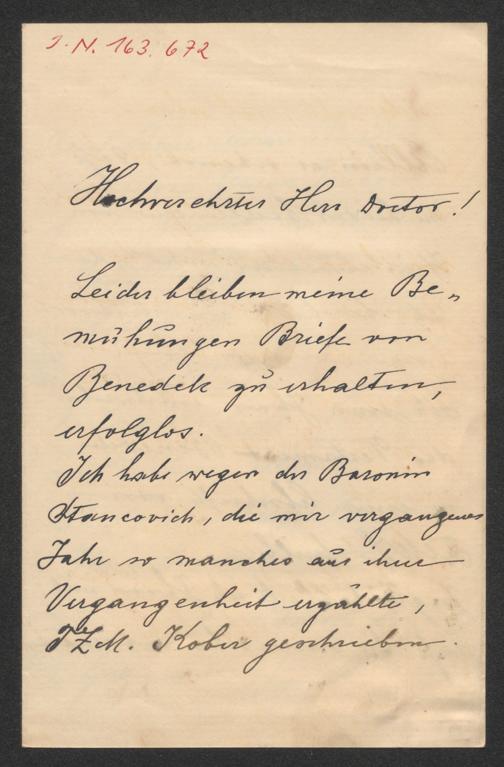 J. N. 163.672
Hochverehrter Herr Doctor!
Leider bleiben meine Be„
mühungen Briefe von
Benedek zu erhalten,
erfolglos.
Ich habe wegen der Baronin
Stancovich, die mir vergangenes
Jahr so manches aus ihrer
Vergangenheit erzählte,
FZM. Kober geschrieben.